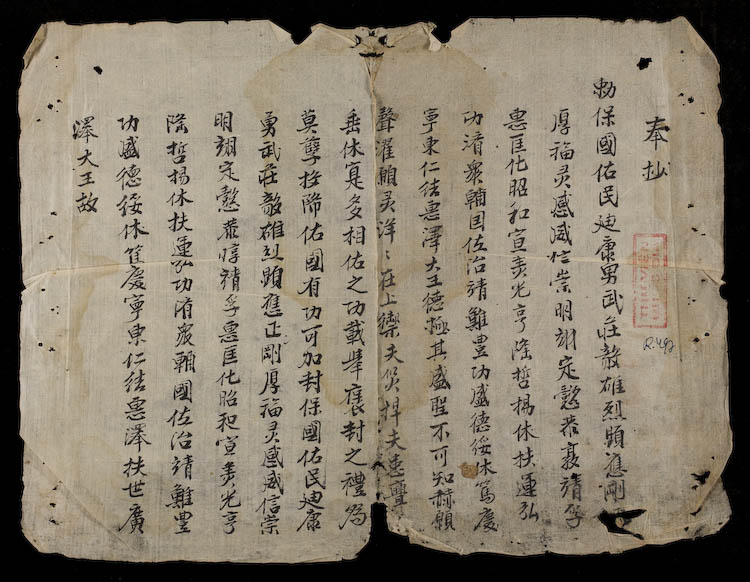 奉抄
勅保國佑民廸康勇武莊毅雄烈顕應剛
厚福灵感威信崇明翊定懿恭 靖孚
惠匡化昭和宣美光亨隆哲揚休扶運弘
功濟衆輔囯佐治靖難豊功盛德綏休篤慶
寧東仁 惠澤大王德極其盛聖不可知 顧
聲濯顧灵洋〻在上禦夫災捍夫患
垂休寔多相佑之功載舉褒封之禮為
莫 投 佑國有功可加封保國佑民廸康
勇武莊毅雄烈顕應正剛厚福灵感威信崇
明翊定懿恭惇靖孚惠匡化昭和宣美光亨
隆哲揚休扶運弘功濟衆輔國佐治靖難豊
功盛德綏休篤慶寧東仁 惠澤扶世廣
澤大王故
R.492